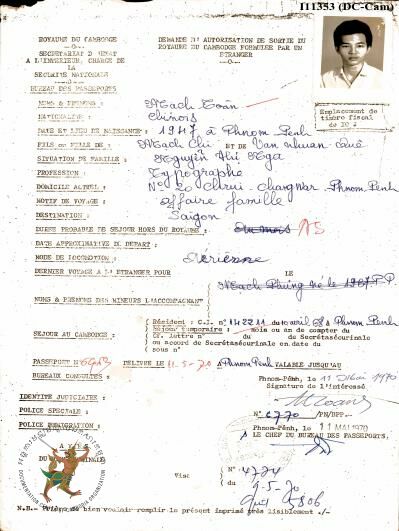 I11353 (DC-Cam)
ROYAUME DU CAMBODGE
DEMANDE D'AUTORISATION DE SORTIE DU
ROYAUME DU CAMBODGE FORMULEE PAR UN
ETRANGER
SECRETARIAT D'ETAT
A L'INTERIEUR, CHARGE DE
LA
SECURITE NATIONALE
BUREAU DES PASSEPORTS
Emplacement de
timbre fiscal
NOMS & PRENOMS : Mach Toàn
NATIONALITE : Chinois
DATE ET LIEU DE NAISSANCE : 1947 à Phnom Penh
FILS OU FILLE DE : Mach Chi ET DE Van Nhuan Quê
SITUATION DE FAMILLE : Nguyên Thi Nga
PROFESSION : Typographe
DOMICILE ACTUEL : N° 20 Chrui Changwar Phnom Penh
MOTIF DE VOYAGE : affaire famille
DESTINATION : Saigon
DUREE PROBABLE DE SEJOUR HORS DU ROYAUME : Un mois AS
DATE APPROXIMATIVE DU DEPART :
MODE DE LOCOMOTION : Aérienne
DERNIER VOYAGE A L'ETRANGER POUR LE
Mach Phung né le 1967 P.P
NOMS & PRENOMS DES MINEURS L'ACCOMPAGNANT
SEJOUR AU CAMBODGE :
Résident : C.I. N° 142211 du 10 avril 68 à Phnom Penh
Séjour temporaire : mois ou an de compter du
CF. lettre N° du Secrétasécurinale
ou Accord de Secrétasécurinale en date du
sous n°
PASSEPORT N° DELIVRE LE 11-5-70 à Phnom Penh VALABLE JUSQU'AU
BUREAUX CONSULTES :
Phnom-Pénh, le 11 Mai 1970
Signature de l'intéressé
MToan
IDENTITE JUDICIAIRE :
POLICE SPECIALE :
POLICE IMMIGRATION :
N° 6770 /PN/BPP.-
Phnom-Pénh, le 11 MAI 1970
LE CHEF DU BUREAU DES PASSEPORTS,
Visa
N° 4774
9-5-70
N.B.- Prière de bien vouloir remplir le présent imprimé très lisiblement ./-